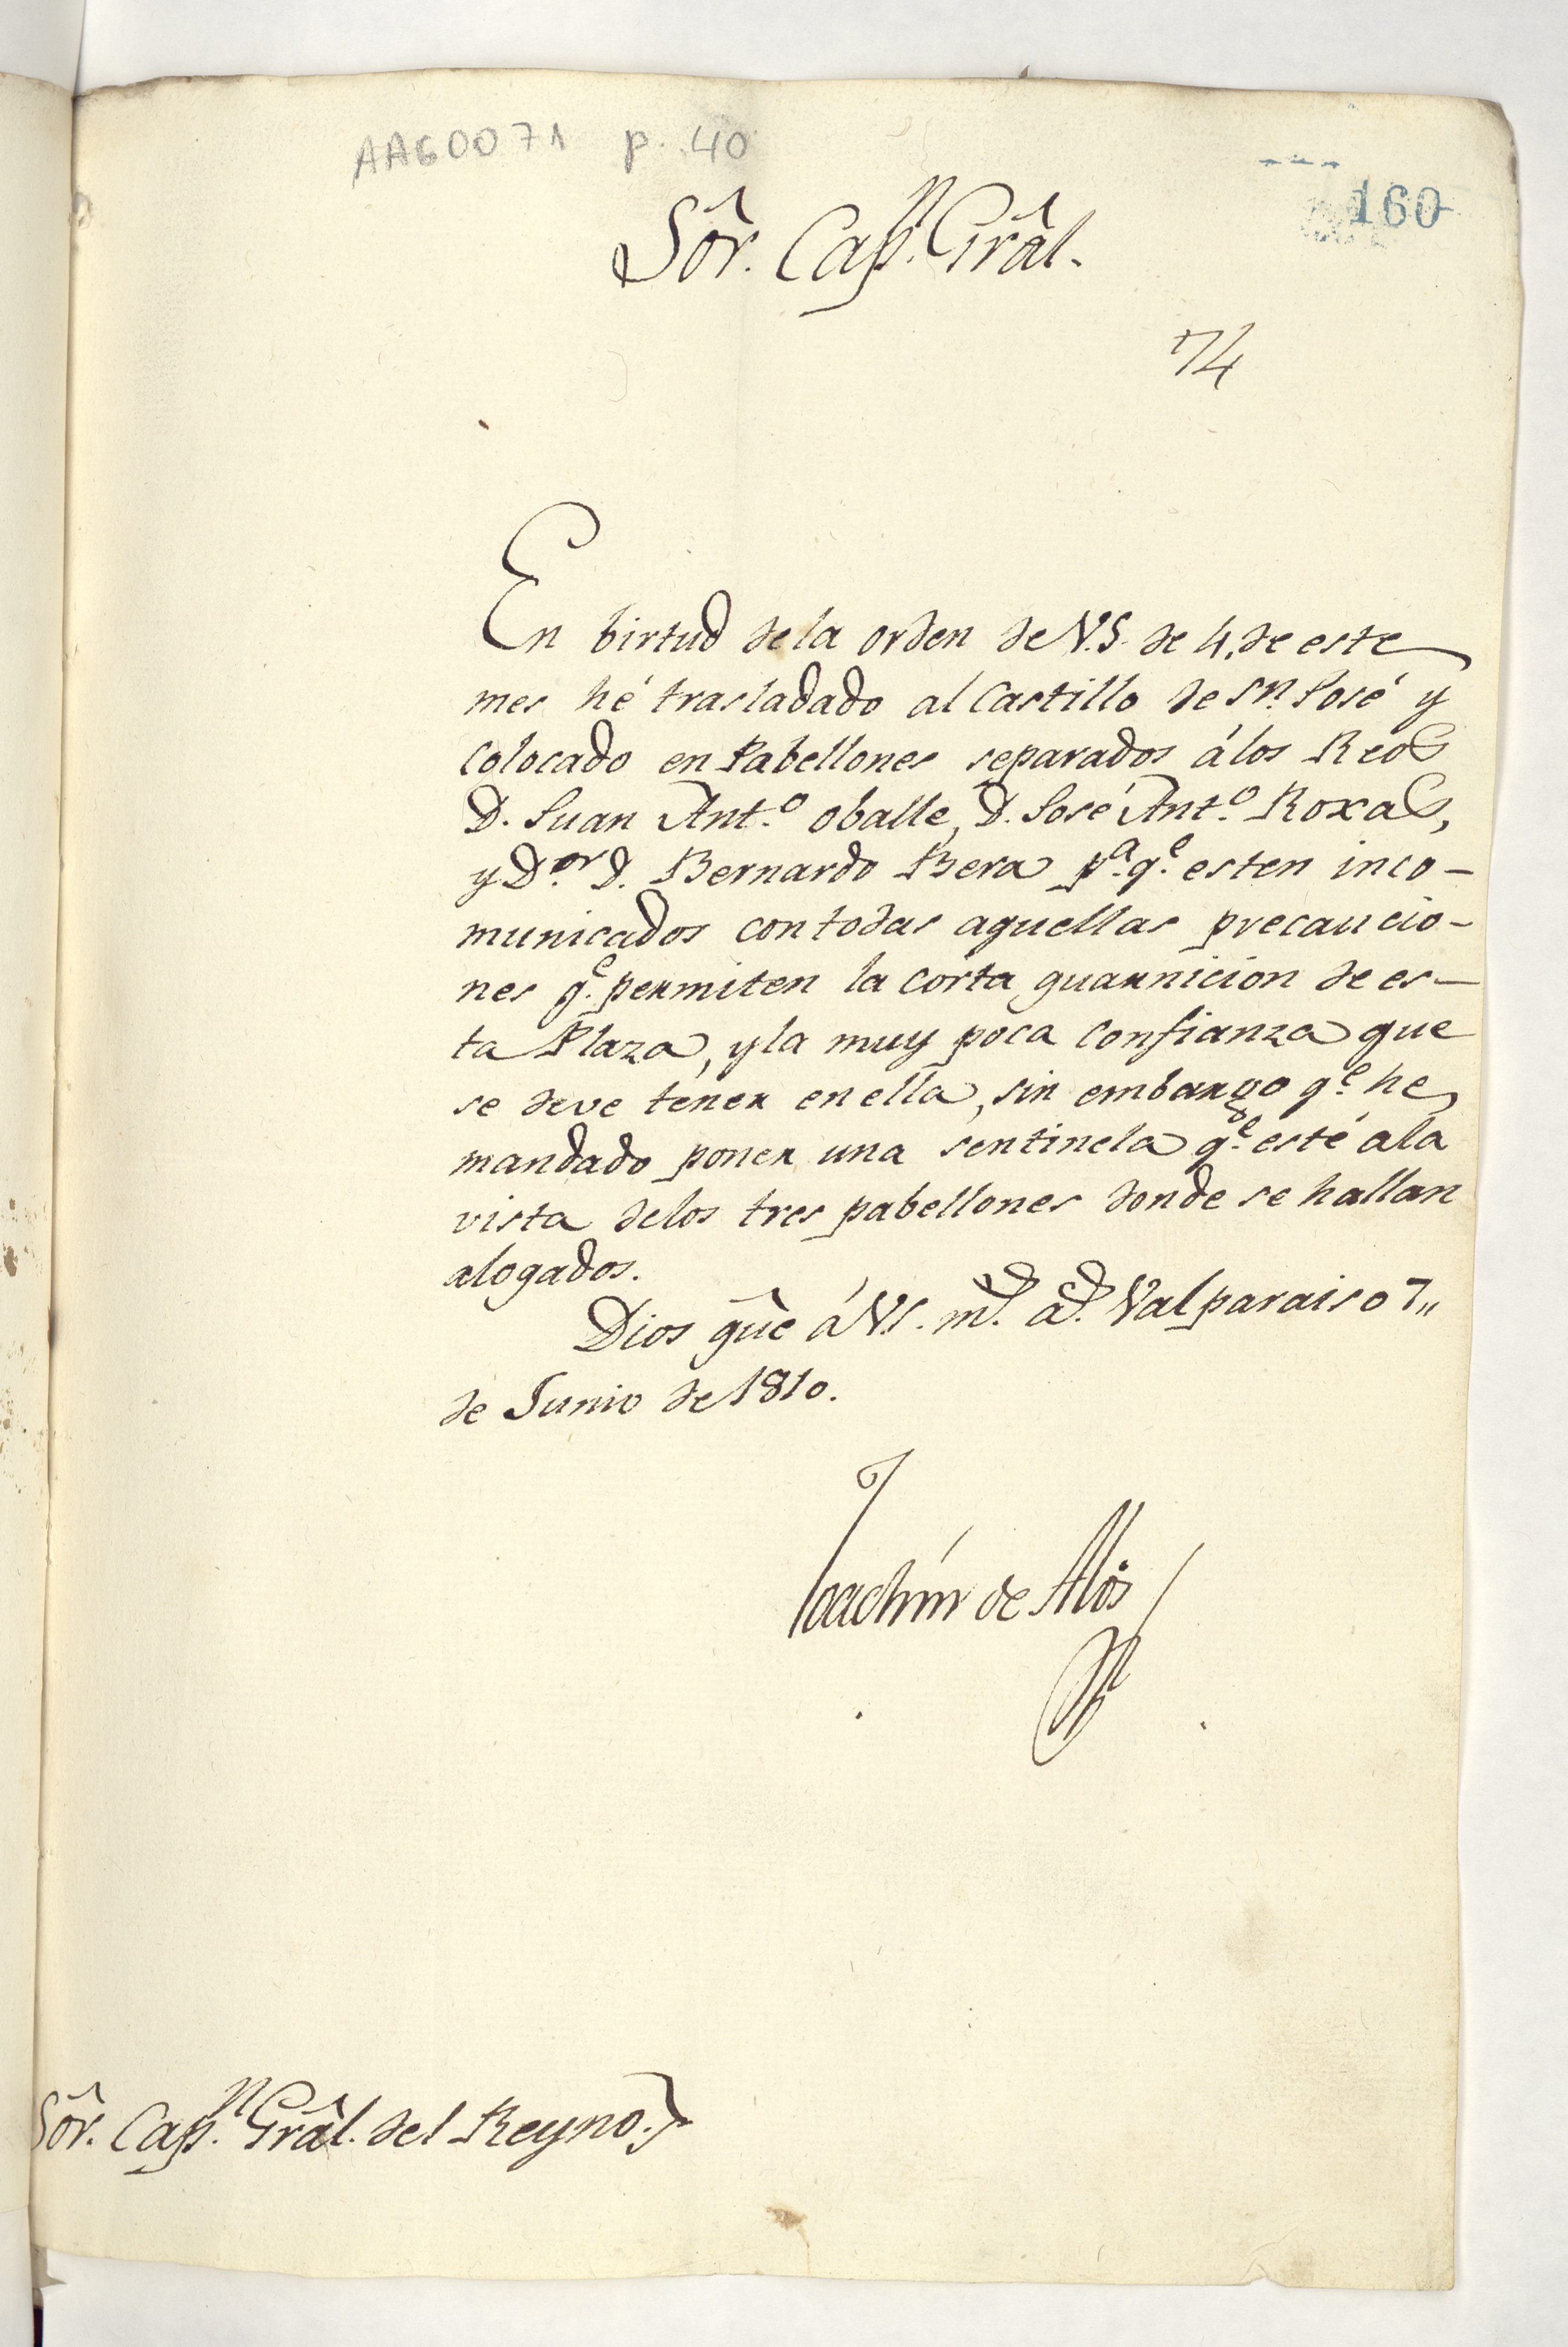 AAG0071 p. 40
160
Sôr. Cap.n Grâl.
74
En birtud dela orden de V.S. de 4, de este
mes hé trasladado al Castillo de Sn. José y
Colocado en Pabellones separados álos Reos
D. Juan Ant.o oballe, D. José Ant.o Roxas,
y D.or D. Bernardo Bera p.a q.e esten inco-
municados con todas aquellas precaucio-
nes q.e permiten la corta guarnicion de es-
ta Plaza, y la muy poca Confianza que
se deve tener en ella, sin embargo q.e he
mandado poner una sentinela q.e esté ala
vista delos tres pabellones donde se hallan
alogados.
Dios gûe á V.S. m.s a.s Valparaiso 7,,
de Junio de 1810.
Joachín de Alós
Sôr. Cap.n Grâl. del Reyno.